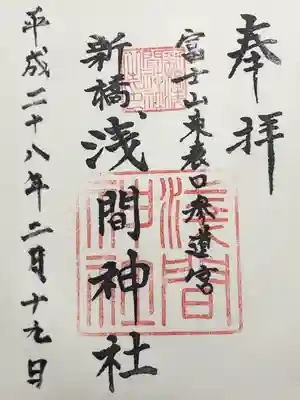 奉拝
富士山東表口参道宮
新橋浅間神社
浅間神社
平成二十八年二月十九日